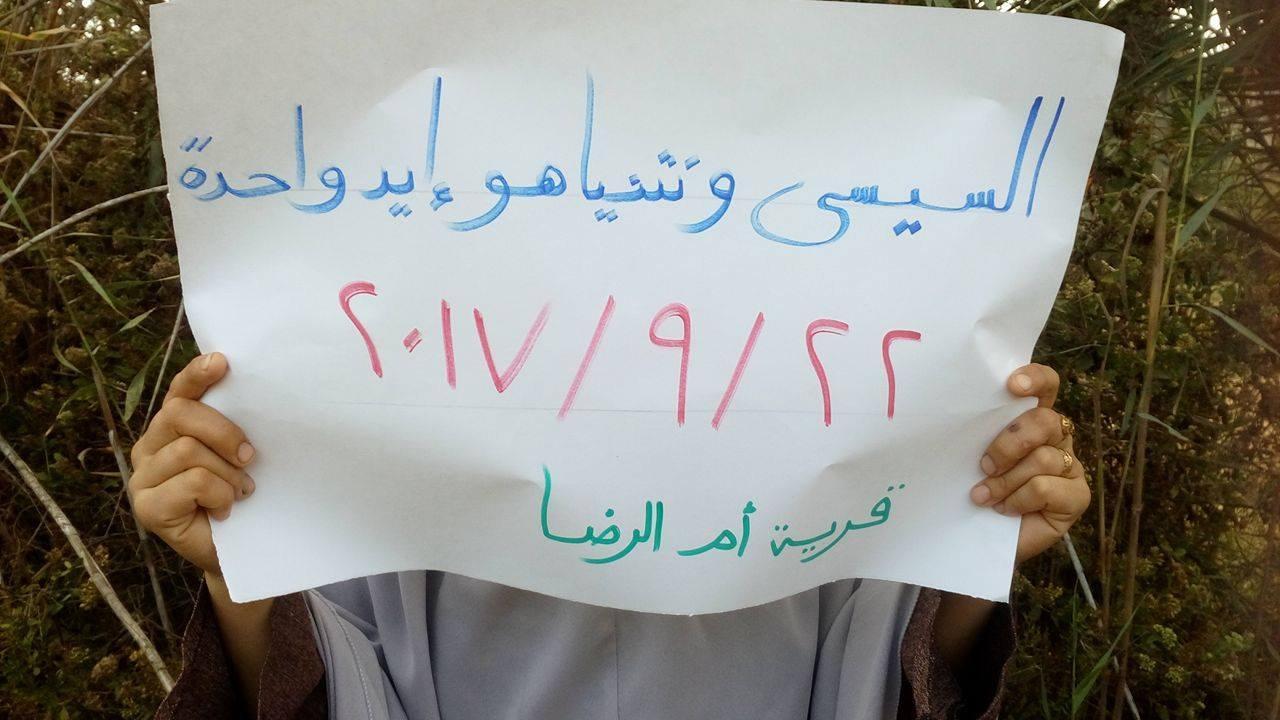 السيسى ونتنياهو إيد واحدة
٢٢/٩/٢٠١٧
قرية أم الرضا